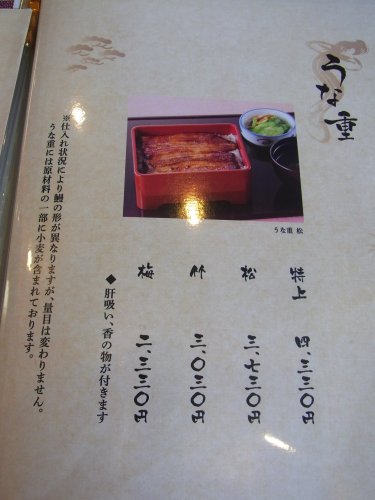 うな重
うな重 松
特上 四、三三〇円
松 三、七三〇円
竹 三、〇三〇円
梅 二、三三〇円
◆肝吸い、香の物が付きます
※仕入れ状況により鰻の形が異なりますが、量目は変わりません。
うな重には原材料の一部に小麦が含まれております。